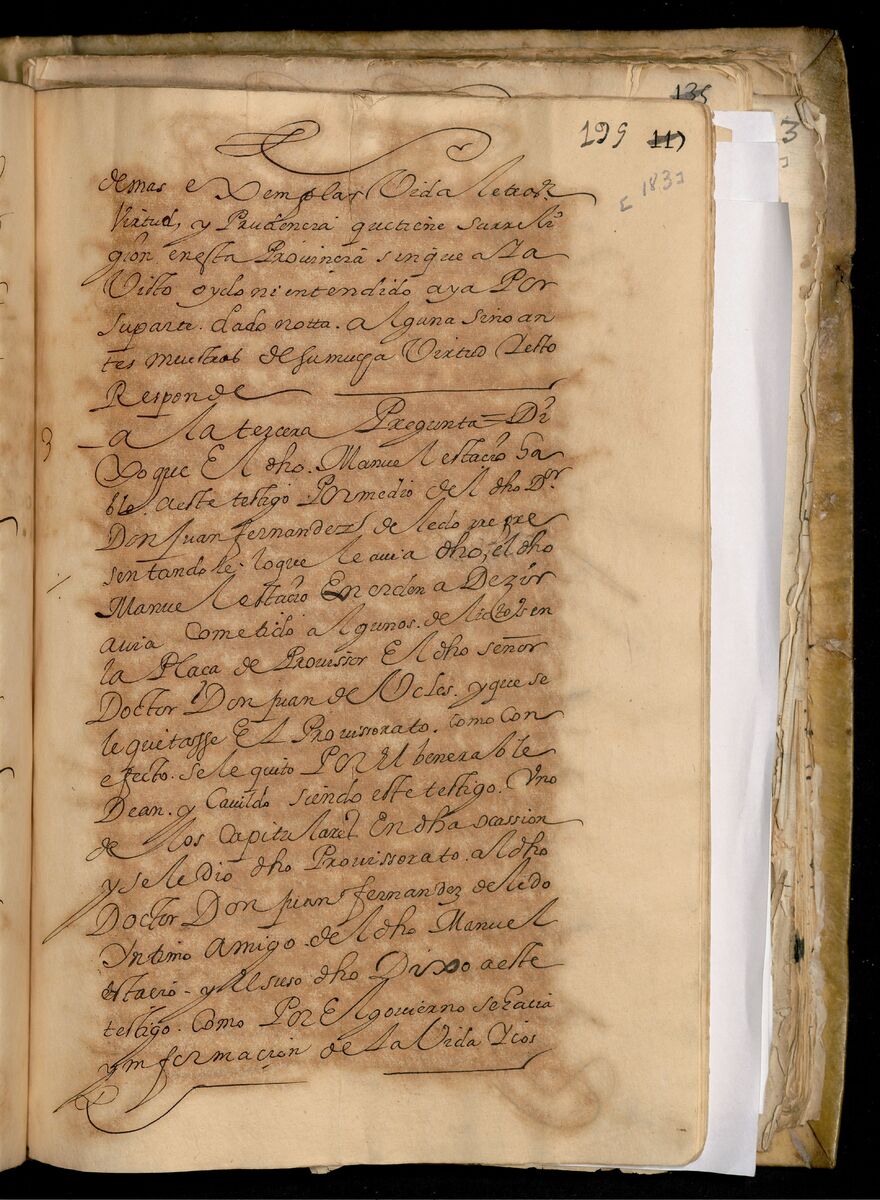 135
3
199 117
[183]
demas exemplar Vida letras
Virtud, y Prudencia que tiene su rreli
gion en esta Provincia sin que a la
Visto oydo ni entendido aya Por
su parte. dado notta. alguna sino an
tes muestras de su mucha Virtud Y esto
Responde
3
a la tercera Pregunta = Di
xo que El dho. Manuel estacio ha
blo. a este testigo Por medio del dho Dr.
Don Juan fernandez de ledo rrepre
sentandole. lo que le avia dho, el dho
Manuel estacio En orden a Dezir
avia cometido algunos. delictos en
la Plaça de Provissor El dho señor
Doctor Don Juan de Vcles. y que se
le quitasse El Provissorato. Como con
efecto. se le quito Por El benerable
Dean. y Cavildo siendo este testigo. Vno
de los Capitulares En dha ocassion
y se le dio dho Provissorato. al dho
Doctor Don Juan fernandez de ledo
Yntimo Amigo. del dho Manuel
estacio - y El suso dho Dixo a este
testigo. Como Por El govierno se hacia
ynformacion de la Vida Y cos